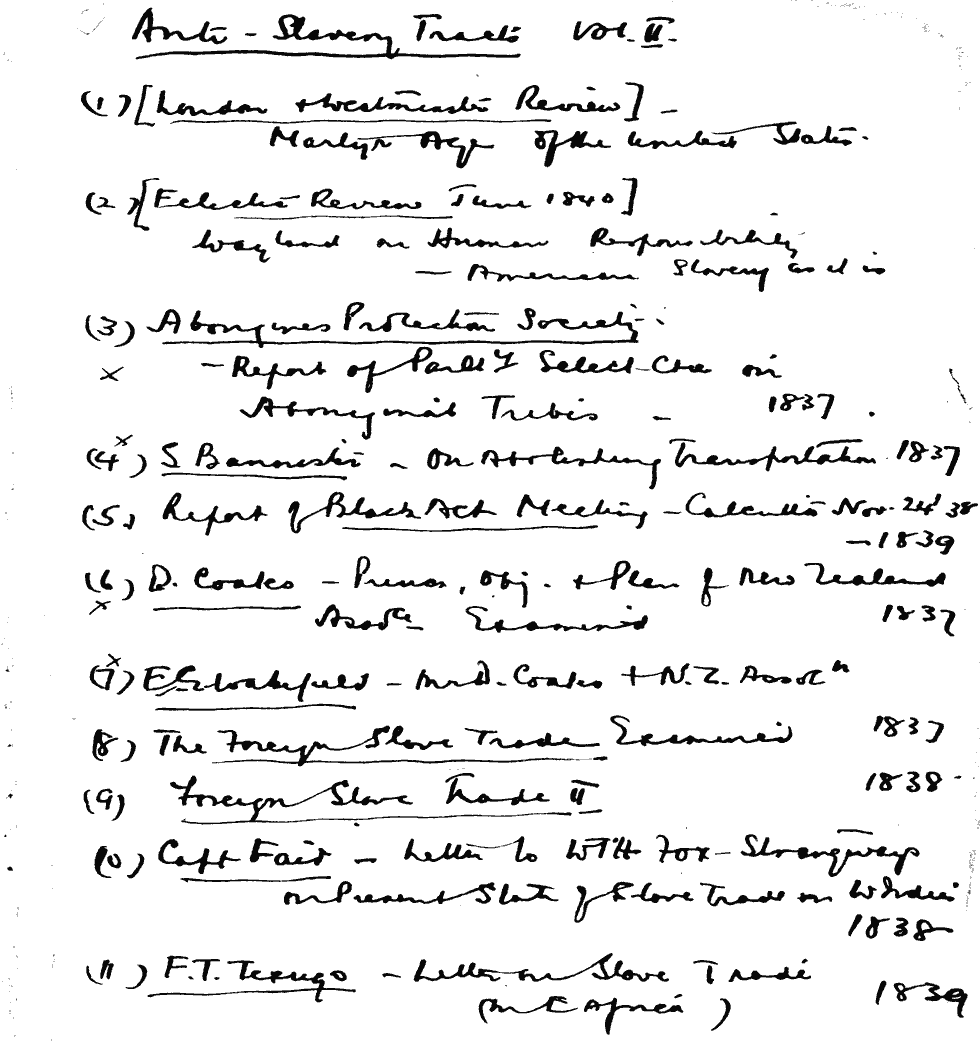 Anti-Slavery Tracts Vol. II.
(1) [London + Westminster Review] -
Martyr Age of the United States.
(2) [Eclectic Review June 1840]
Wayland on Human Responsibility
- American Slavery as it is
(3) Aborigines Protection Society.
x - Report of Parlty Select Ctee on
Aboriginal Tribes - 1837.
x
(4) S Bannister - On Abolishing Transportation 1837
(5) Report of Black Act Meeting - Calcutta Nov. 24 '38
- 1839
(6) D. Coates - Princs, Obj. + Plan of New Zealand
x Assocn Examined 1837
x
(7) E G Wakefield - Mr D. Coates + N.Z. Assocn
(8) The Foreign Slave Trade Examined 1837
(9) Foreign Slave Trade II 1838
(10) Capt Fair - Letter to WTH Fox-Strangways
on Present State of Slave Trade in W Indies
1838
(11) F.T. Texugo - Letter on Slave Trade
(in E Africa) 1839